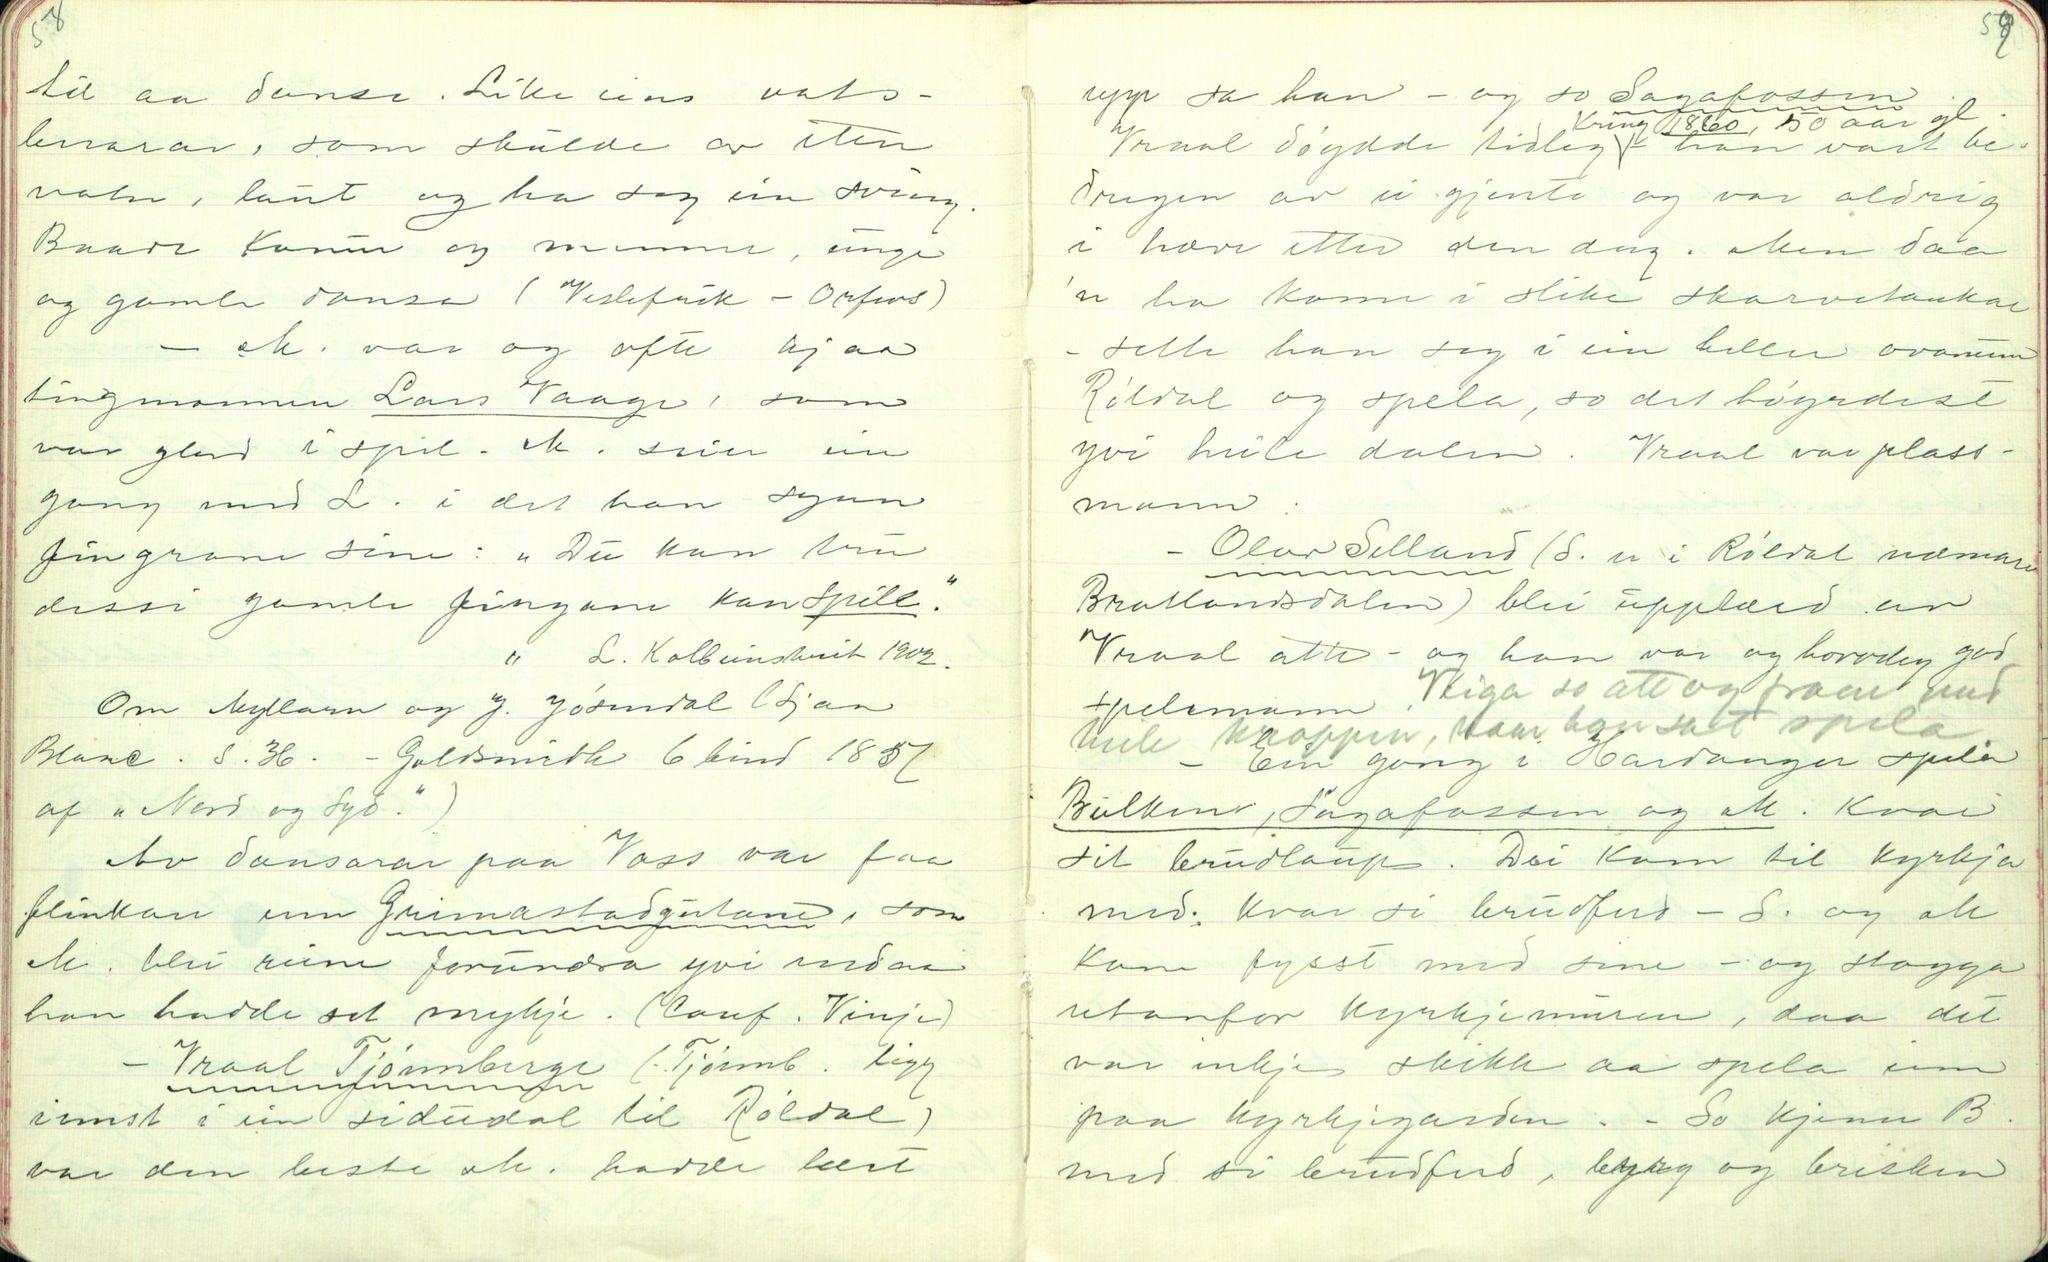 58
til aa danse. Like eins vats-
berarar, som skulde av etter
vatn, laut og ha seg ein sving.
Baade konur og menner, unge
og gamle dansa (Veslefrik - Orfevs)
- M. var og ofte hjaa
tingmannen Lars Vaage, som
var glad i spel. M. seier ein
gong med L. i det han syner
fingrane sine: "Du kan tru
dessi gamle fingane kan spille."
" L. Kolbeinstveit 1902.
Om Myllarn og J. Jósendal (Sjaa
Blanc. S. 36. - Goldsmidth 6 bind 1857
af "Nord og Syd.")
Av dansarar paa Voss var faa
flinkar enn Grimastadgutane, som
M. blei reine forundra yvi endaa
han hadde set mykje. (Conf. Vinje)
- Vraal Tjónnberge (Tjónnb. ligg
innst i ein sidedal til Róldal)
var den beste M. hadde lært
59
upp sa han - og so Sagafossen.
Kring 1860, 50 aar gl.
Vraal dóydde tidleg - han vart be-
dregen av ei gjente og var aldrig
i hære etter den dag. Men daa
'n ha kome i slike skarvetankar
- sette han seg i ein heller ovanum
Róldal og spela, so det hóyrdest
yvi heile dalen. Vraal var plass-
mann.
- Olav Selland (S. er i Róldal næmare
Bratlandsdalen) blei upplærd av
Vraal atte - og han var og hovudeg god
spelemann. Veiga so att og fram med
heile kroppen, naar han sat spela.
- Ein gong i Hardanger spela
Bulken, Sagafossen og M. kvar
sit brudlaup. Dei kom til kyrkja
med kvar si brudferd - S. og M
kom fysst med sine - og stogga
utanfor kyrkjemuren, daa det
var inkje skikk aa spela inn
paa kyrkjegarden. - So kjem B.
med si brudferd, byrg og brisken